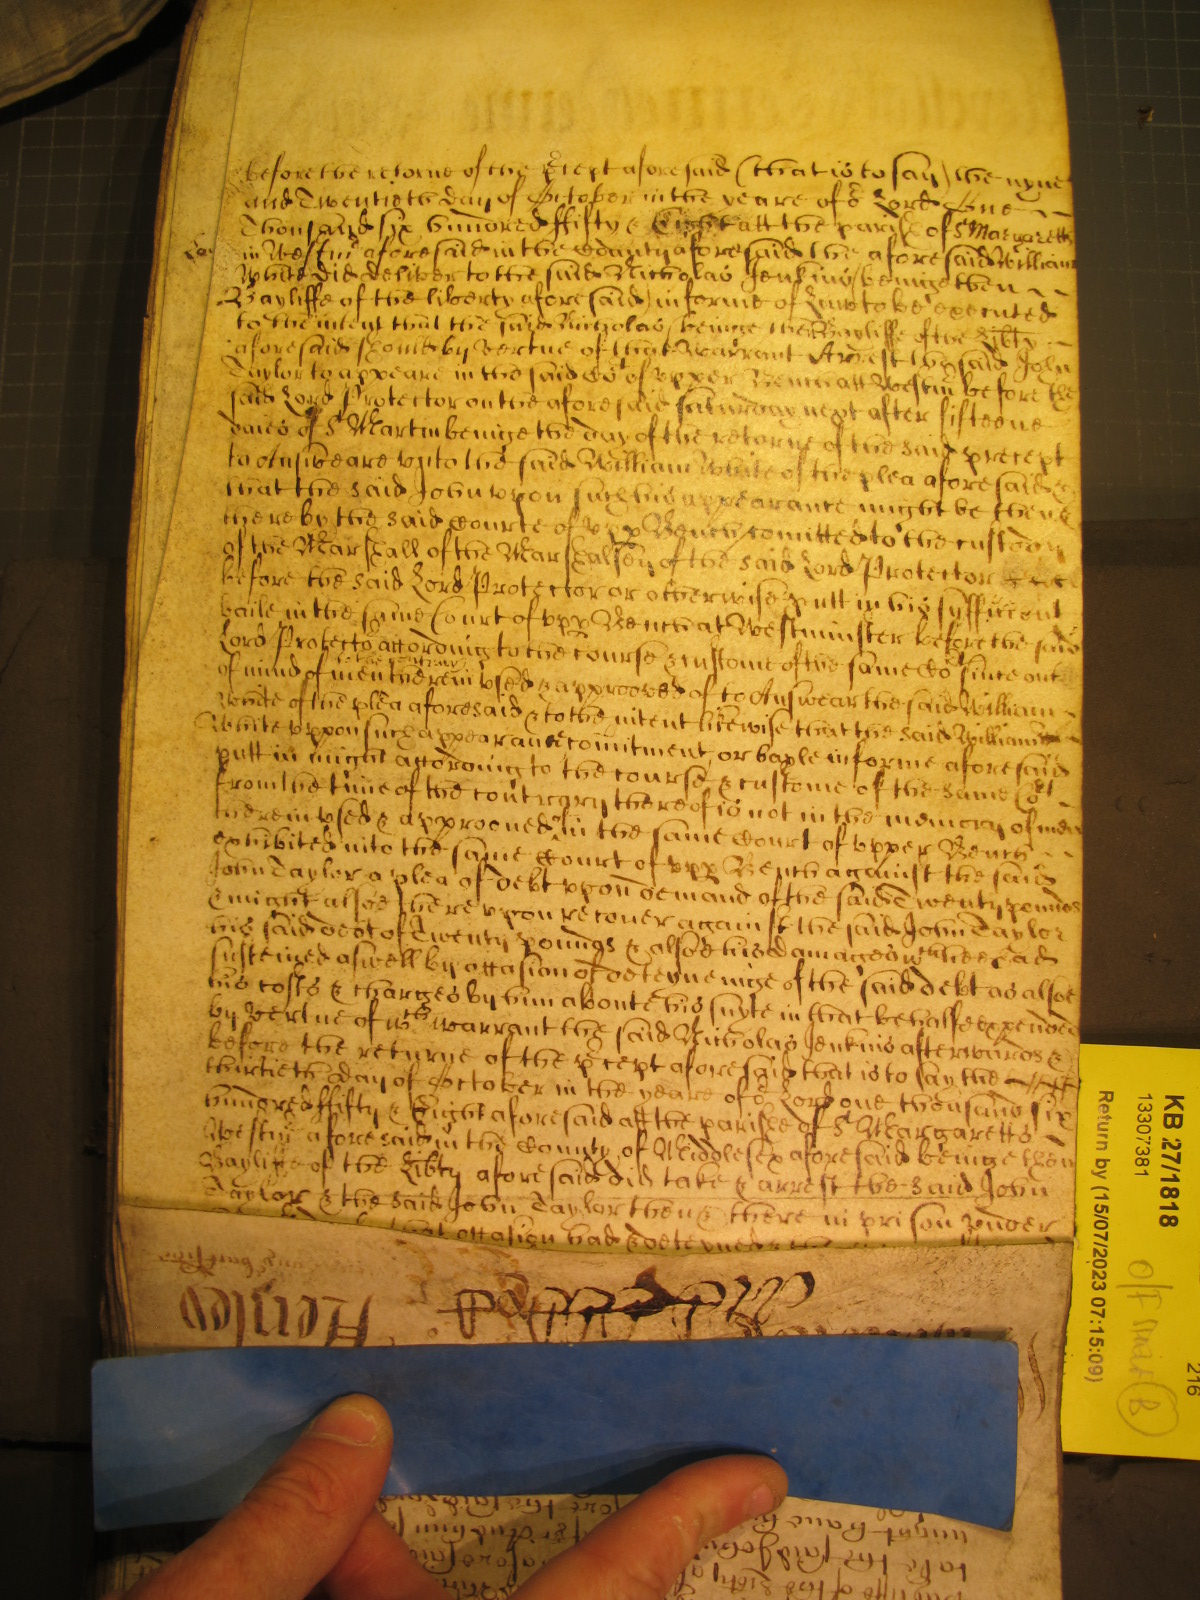 before the retorne of the p̄cept aforesaid (that is to say) the nyne
and Twentieth day of October in the yeare of oͬ Lord One
Thousand six hundred ffifty & Eight att the parish of Sͭ Margaretts
in Westmͬ aforesaid in the County aforesaid the aforesaid William
White did deliver to the said Nicholas Jenkins (beinge then
Bayliffe of the liberty aforesaid) in forme of Law to be executed
to the intent that the said Nicholas (beinge then Bayliffe of the Libty
aforesaid should by vertue of that warrant Arrest the said John
Taylor to appeare in the said Coͬt of vpper Bench att Westm̄ before the
said Lord Protector on the aforesaid saturday next after fifteene
daies of Sͭ Martin beinge the day of the retorne of the said precept
to Answeare vnto the said William White of the plea aforesaid &
that the said John vpon such his appearance might be then &
thereby the said Courte of vpp Bench comitted to the custody
of the Marshall of the Marshalsey of the said Lord Protector
before the said Lord Protector or otherwise putt in his sufficient
baile in the same Court of vpp Bench at Westminster before the said
Lord Protectoͬ according to the course & custome of the same Coͬt since out
of mind of men to the contrary therein vsed & approoved of to Answear the said William
White of the plea aforesaid & to the intent likewise that the said William
White vppon such appearance comitment or bayle in forme aforesaid
putt in might according to the course & custome of the same Coͬt
from the time of the contrary thereof is not in the memory of men
therein vsed & approoued in the same Court of vpper Bench
exhibited into the same Court of vpp Bench against the said
John Taylor a plea of debt vppon demand of the said Twenty pounds
& might alsoe therevpon recouer against the said John Taylor
his said debt of Twenty pounds & alsoe his damages wͨͪ hee had
susteined aswell by occasion of deteyneinge of the said debt as alsoe
his costs & charges by him aboute his suyte in that behalfe expended
by vertue of wͨͪ warrant the said Nicholas Jenkins afterwards &
before the returne of the p̄cept aforesaid that is to say the
thirtieth day of October in the yeare of oͬ Lord one thousand six
hundred ffifty & Eight aforesaid att the parishe of Sͭ Margaretts
Westmͬ aforesaid in the County of Middlesex aforesaid beinge then
Bayliffe of the Libty aforesaid did take & arrest the said John
Taylor & the said John Taylor then & there in prison vnder
that occasion had & deteyned
KB 27/1818
13307381
Return by (15/07/2023 07:15:09)
216